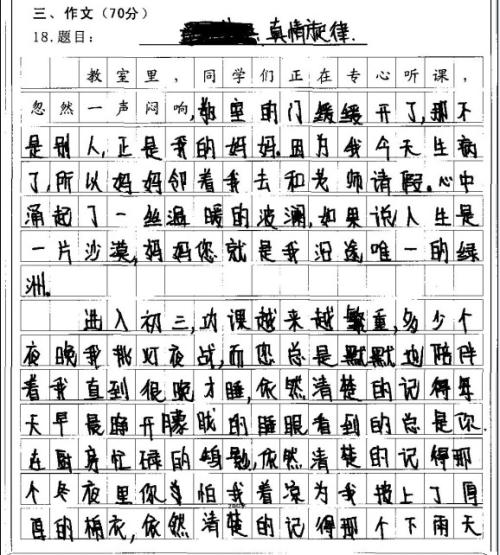 三、作文（70分）
18.题目： 真情旋律.
教室里，同学们正在专心听课，
忽然一声闷响,教室的门缓缓开了,那不
是别人,正是我的妈妈.因为我今天生病
了,所以妈妈领着我去和老师请假.心中
涌起了一丝温暖的波澜,如果说人生是
一片沙漠,妈妈您就是我沿途唯一的绿
洲.
进入初三,功课越来越繁重,多少个
夜晚我挑灯夜战,而您总是默默地陪伴
着我直到很晚才睡,依然清楚的记得每
天早晨睁开朦胧的睡眼看到的总是你
在厨房忙碌的身影,依然清楚的记得那
个冬夜里你害怕我着凉为我披上了厚
厚的棉衣,依然清楚的记得那个下雨天